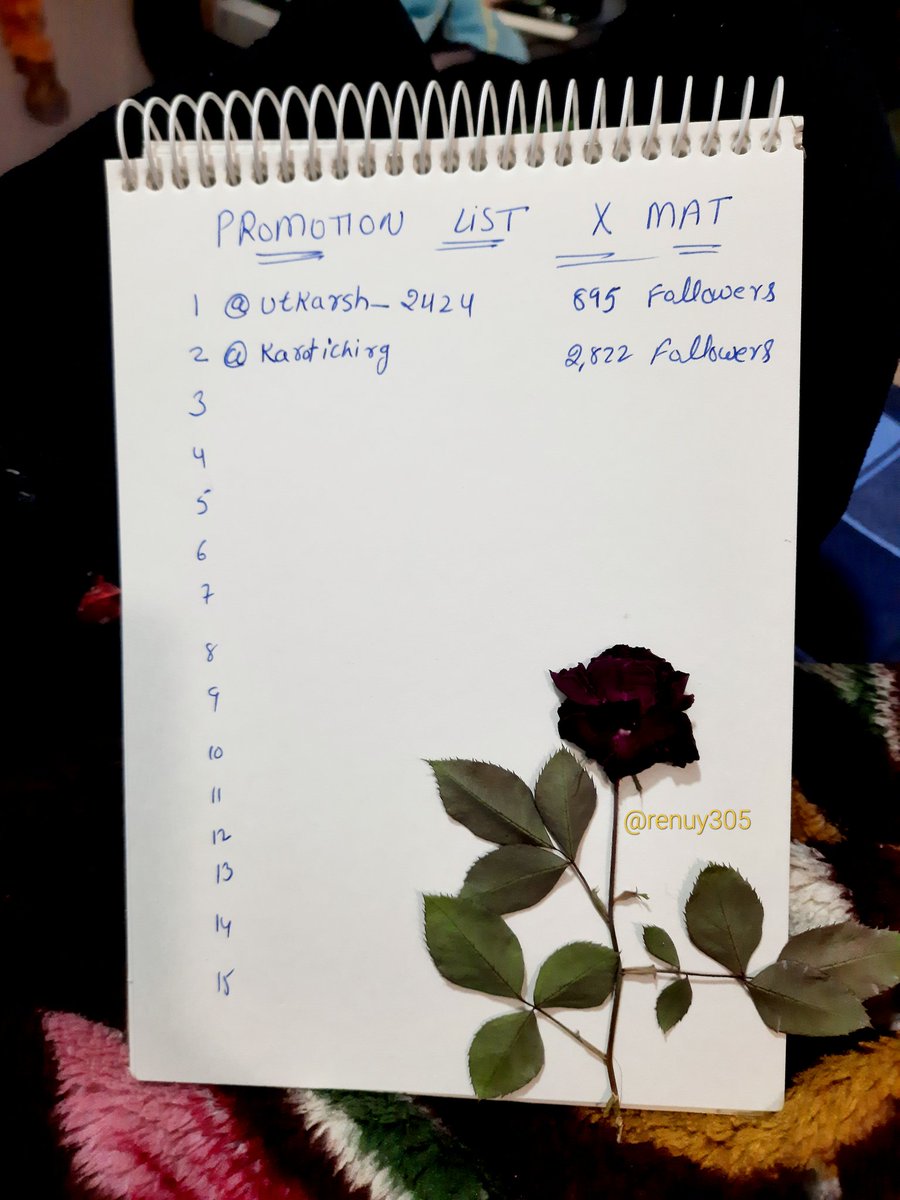 PROMOTION LIST X MAT
1 @utkarsh_2424 895 Followers
2 @Kartichirg 2,822 Followers
3
4
5
6
7
8
9
10
11
12
@renuy305
13
14
15